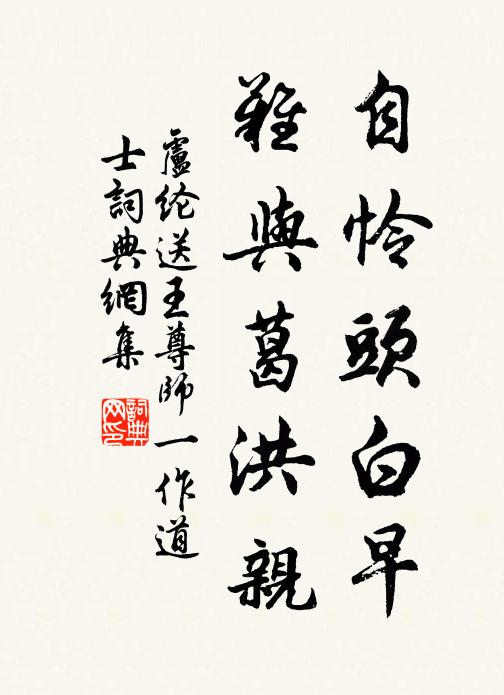 自怜頭白早
難與葛洪親
盧纶送王尊師一作道
士詞典網集
詞典
网印